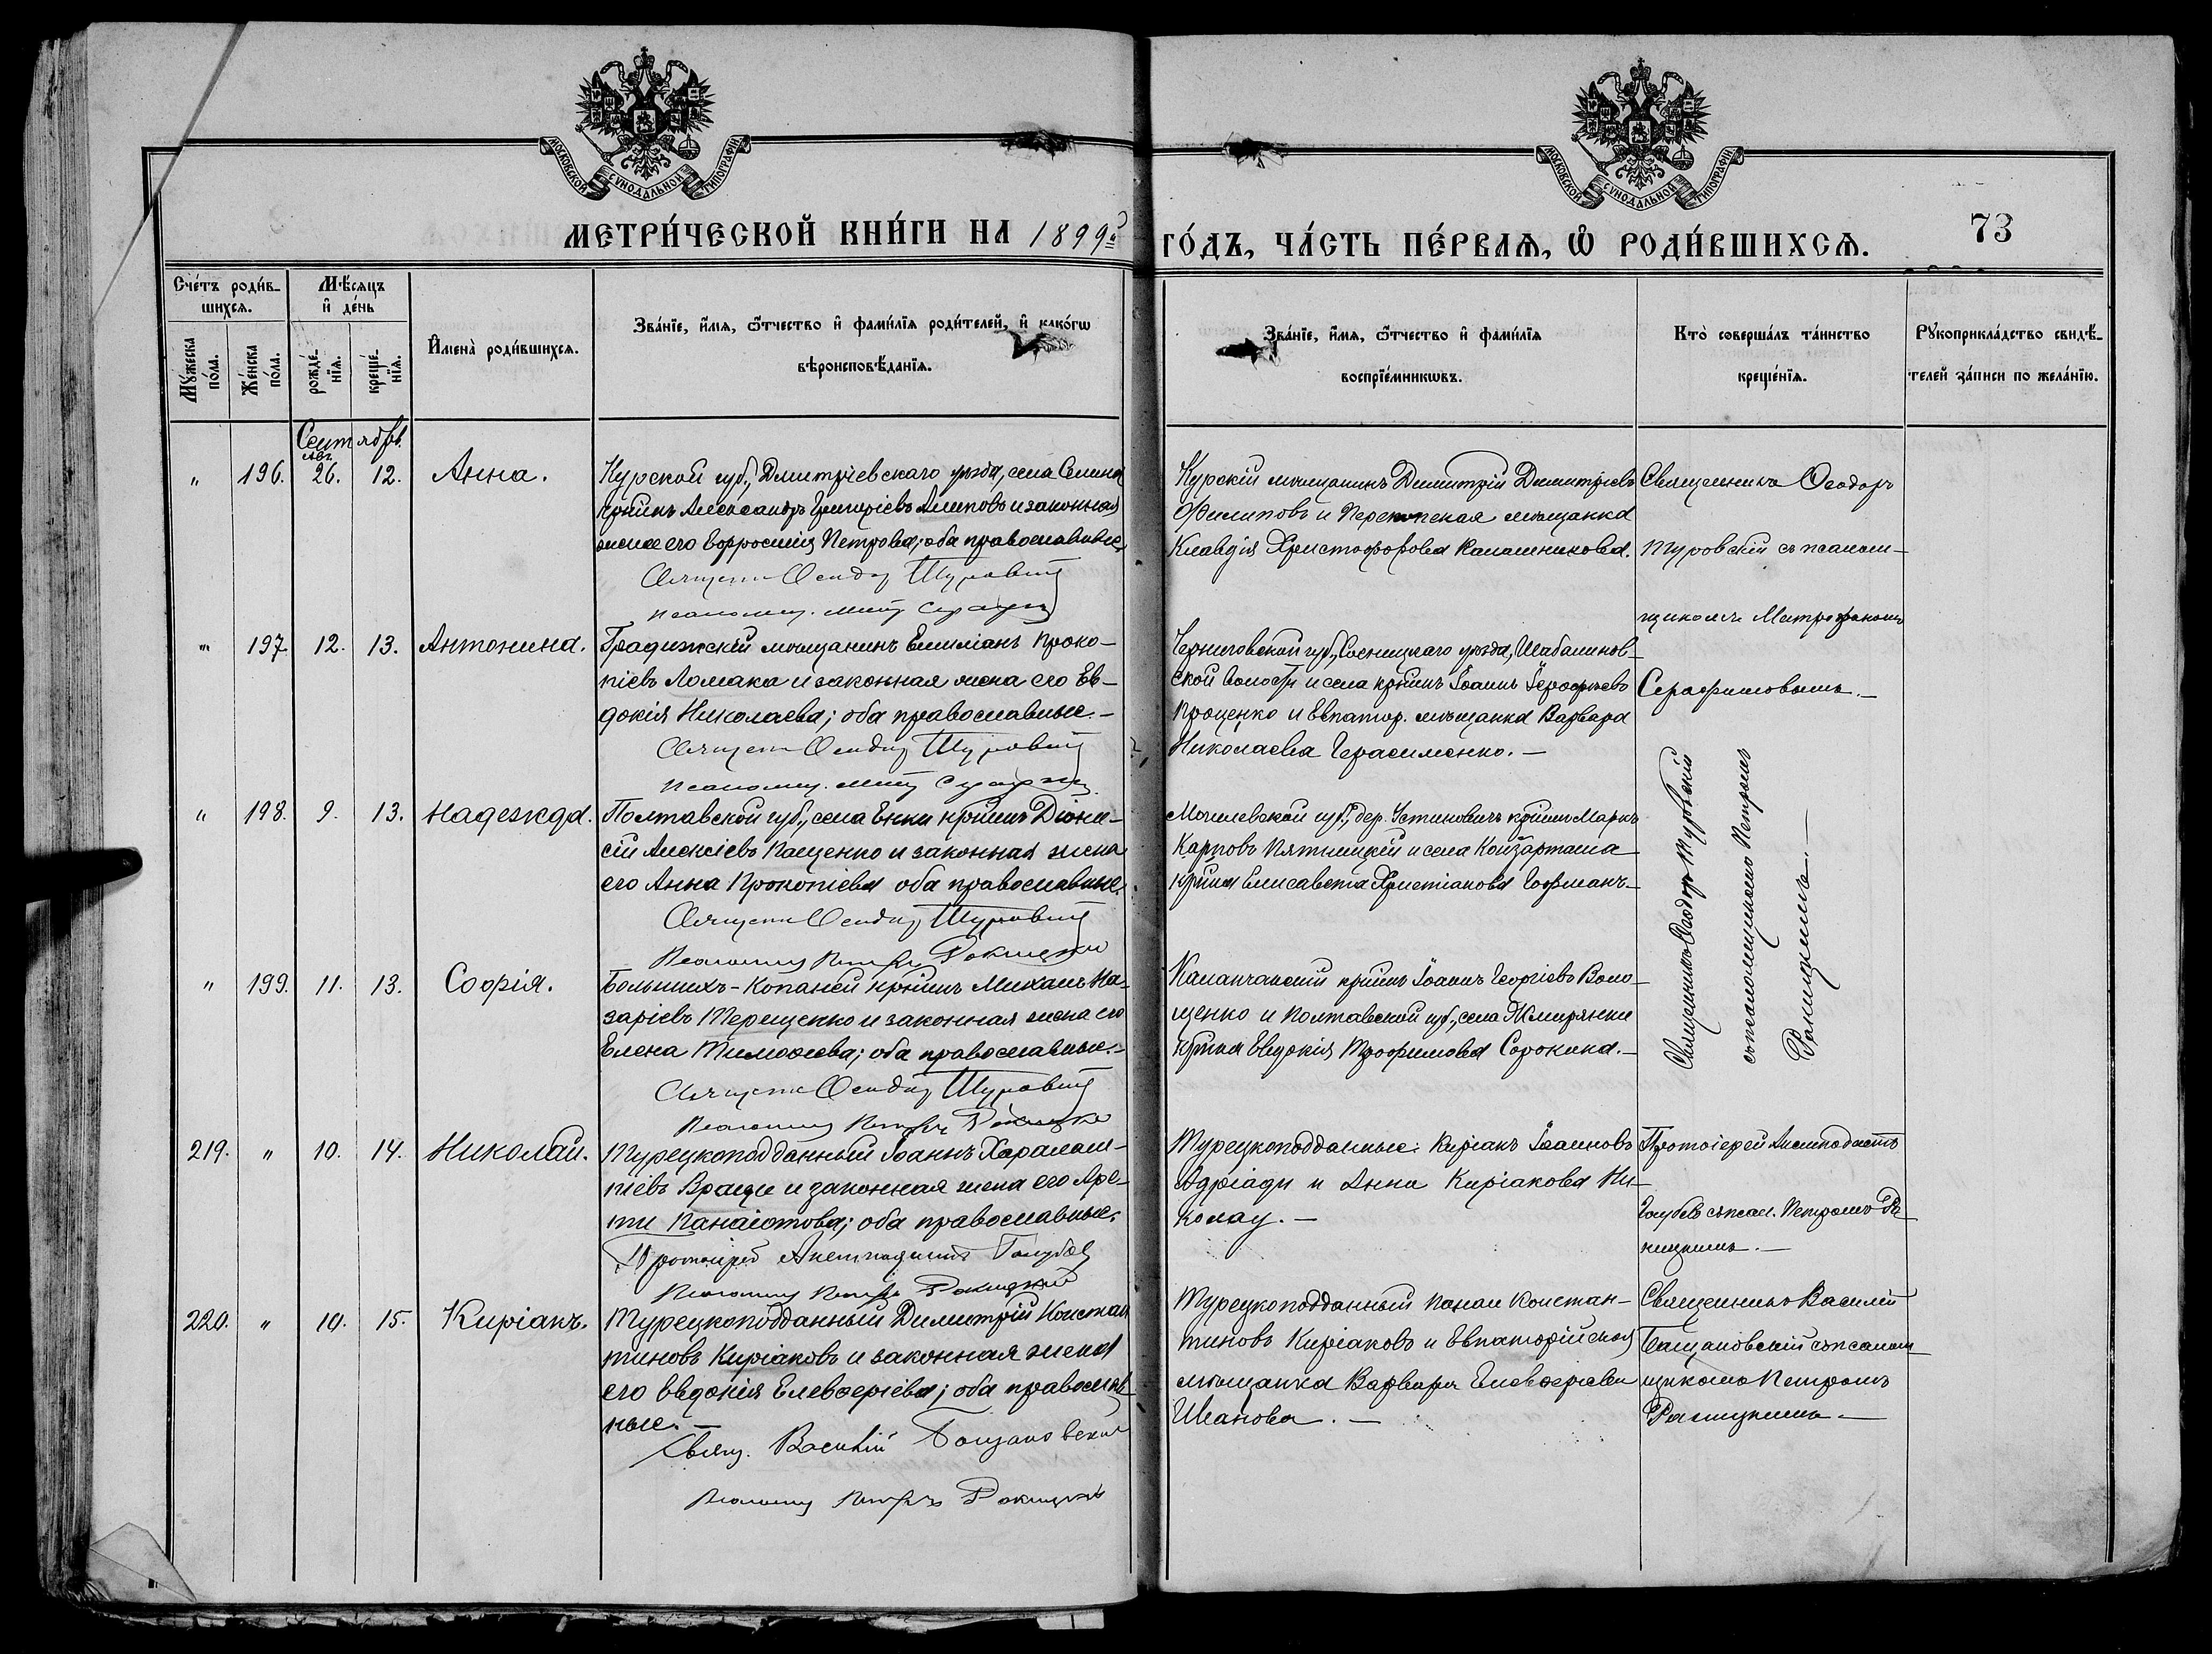 МОСКОВСКОЙ СУНОДАЛЬНОЙ ТИПОГРАФІИ
МОСКОВСКОЙ СУНОДАЛЬНОЙ ТИПОГРАФІИ
МЕТРИ́ЧЕСКОЙ КНИ́ГИ НА 1899й
ГО́ДЪ, ЧА́СТЬ ПЕ́РВАѦ, Ѡ РОДИ́ВШИХСѦ.
73
Сче́тъ роди́в-
шихсѧ.
Мѣ́сѧцъ
и҆ де́нь
Мꙋ́жеска
по́ла.
Же́нска
по́ла.
рожде́-
нїѧ.
креще́-
нїѧ.
И҆мена̀ роди́вшихсѧ.
Зва́нїе, и҆́мѧ, ѻ҆́тчество и҆ фами́лїѧ роди́телей, и҆ како́гѡ
вѣроисповѣ́данїѧ.
Зва́нїе, и҆́мѧ, ѻ҆́тчество и҆ фами́лїѧ
воспрїе́мникѡвъ.
Кто̀ соверша́лъ та́инство
креще́нїѧ.
Рꙋкоприкла́дство свидѣ́-
телей за́писи по жела́нїю.
Сентябрь.
Авг.
" 196. 26. 12. Анна.
Курской губ., Дмитріевскаго уѣзда, села Селина
крѣинъ Александръ Григоріевъ Алиповъ и законная
жена его Петрова; оба православные.
Священ. Ѳеодор Туровскій
Псаломщ. Митр. Серафим
Курскій мѣщанинъ Димитрій Димитріевъ
Филиповъ и Перекопская мѣщанка
Клавдія Христофорова Калашникова.
Священникъ Ѳеодоръ
Туровскій съ псалом-
щикомъ Митрофаномъ
Серафимовымъ.—
" 197. 12. 13. Антонина.
Градижскій мѣщанинъ Емиліанъ Проко-
піевъ Ломака и законная жена его Ев-
докія Николаева; оба православные.—
Священ. Ѳеодор Туровскій
Псаломщ. Митр. Серафим
Черниговской губ., Сосницкаго уѣзда, Шабалинов-
ской волости и села крѣинъ Іоаннъ Іерофѣевъ
Проценко и Евпатор. мѣщанка Варвара
Николаева Герасименко.—
" 198. 9. 13. Надежда.
Полтавской губ., села Енки крѣинъ Діони-
сій Алексіевъ Пащенко и законная жена
его Анна Прокопіева оба православные.
Священ. Ѳеодор Туровскій
Псаломщ. Петръ Ракицкій
Могилевской губ., дер. Устиновичъ крѣинъ Маркъ
Карповъ Пятницкій и села Койзарташа
крѣика Елисавета Христіанова Гофманъ.—
Священникъ Ѳеодоръ Туровскій
съ псаломщикомъ Петромъ
Ракицкимъ.—
" 199. 11. 13. Софія.
Большихъ-Копаней крѣинъ Михаилъ На-
заріевъ Терещенко и законная жена его
Елена Тимоѳеева; оба православные.—
Священ. Ѳеодор Туровскій
Псаломщ. Петръ Ракицкій
Каланчакскій крѣинъ Іоаннъ Георгіевъ Воло-
щенко и Полтавской губ., села Жмирянки
крѣика Евдокія Трофимова Сорокина.—
219. " 10. 14. Николай.
Турецкоподданный Іоаннъ Харалам-
піевъ Враци и законная жена его Аре-
ти Панаіотова; оба православные.
Протоіерей Аненподистъ Голубев
Псаломщ. Петръ Ракицкій
Турецкоподданные: Киріакъ Іоанновъ
Адріади и Анна Киріакова Ни-
колау.—
Протоіерей Аненподистъ
Голубевъ съ псал. Петромъ Ра-
кицкимъ.—
220. " 10. 15. Киріакъ.
Турецкоподданный Димитрій Констан-
тиновъ Киріаковъ и законная жена
его Евдокія Елевѳеріева; оба православ-
ные.—
Свящ. Василій Бащановскій
Псаломщ. Петръ Ракицкій
Турецкоподданный Панаи Констан-
тиновъ Киріаковъ и Евпаторійская
мѣщанка Варвара Елевѳеріева
Иванова.—
Священникъ Василій
Бащановскій съ псалом-
щикомъ Петромъ
Ракицкимъ.—